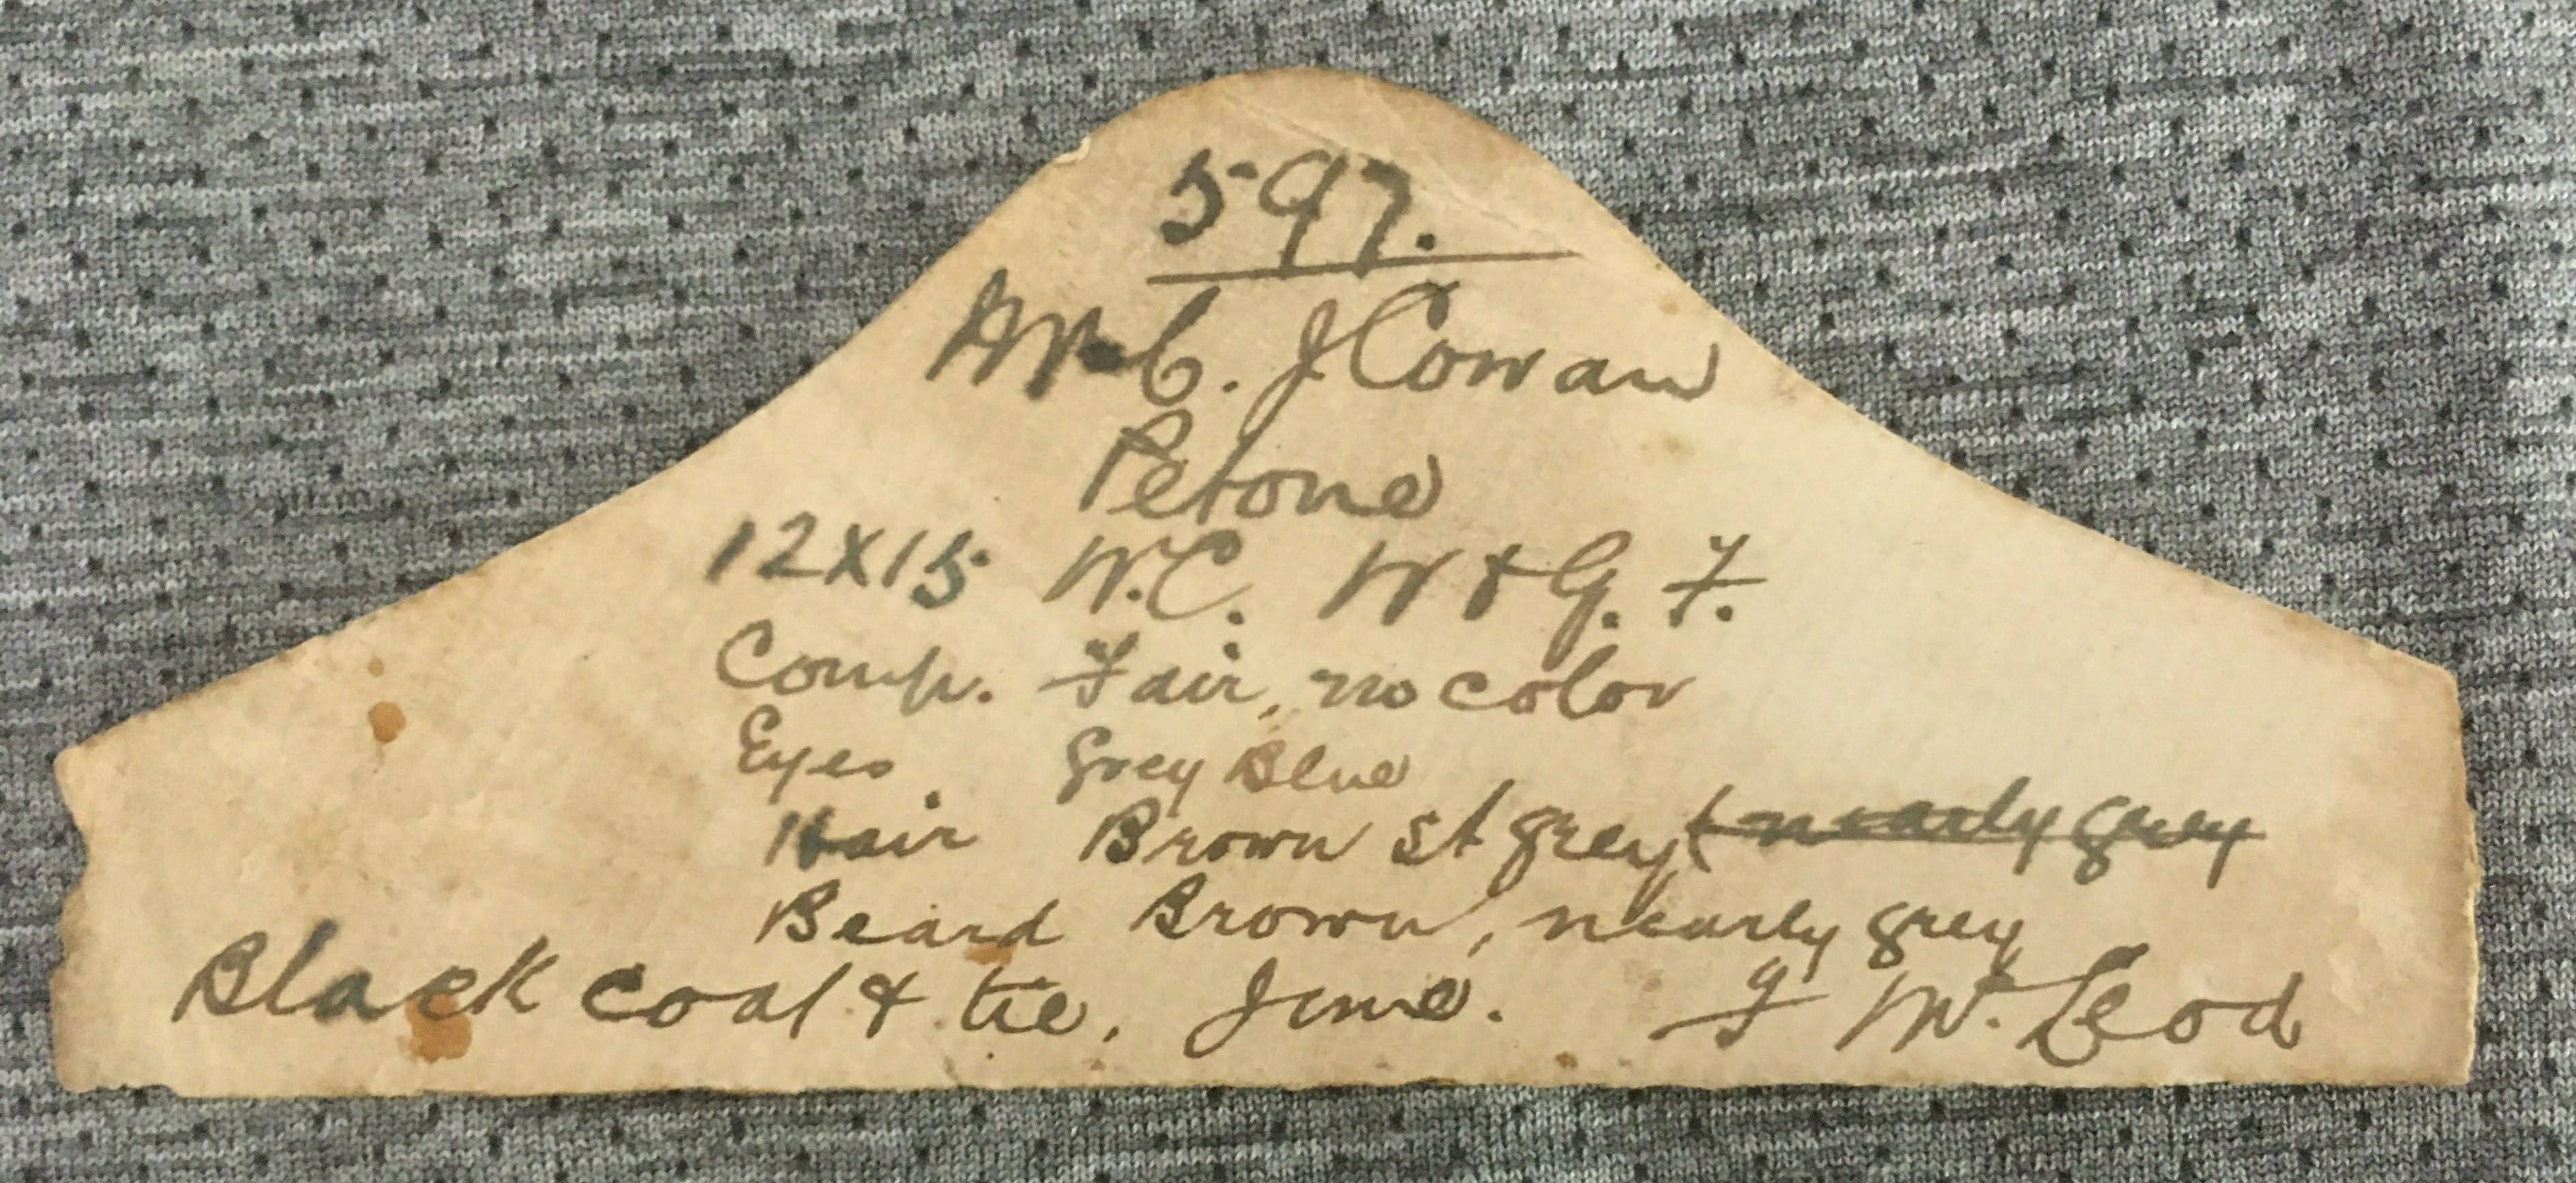 597.
Mr C. J Cowan
Petone
12X15 W.C. W & G. F.
Comp. Fair, no color
Eyes Grey Blue
Hair Brown st grey, nearly grey
Beard Brown, nearly grey
Black coat & tie, June. J McLeod